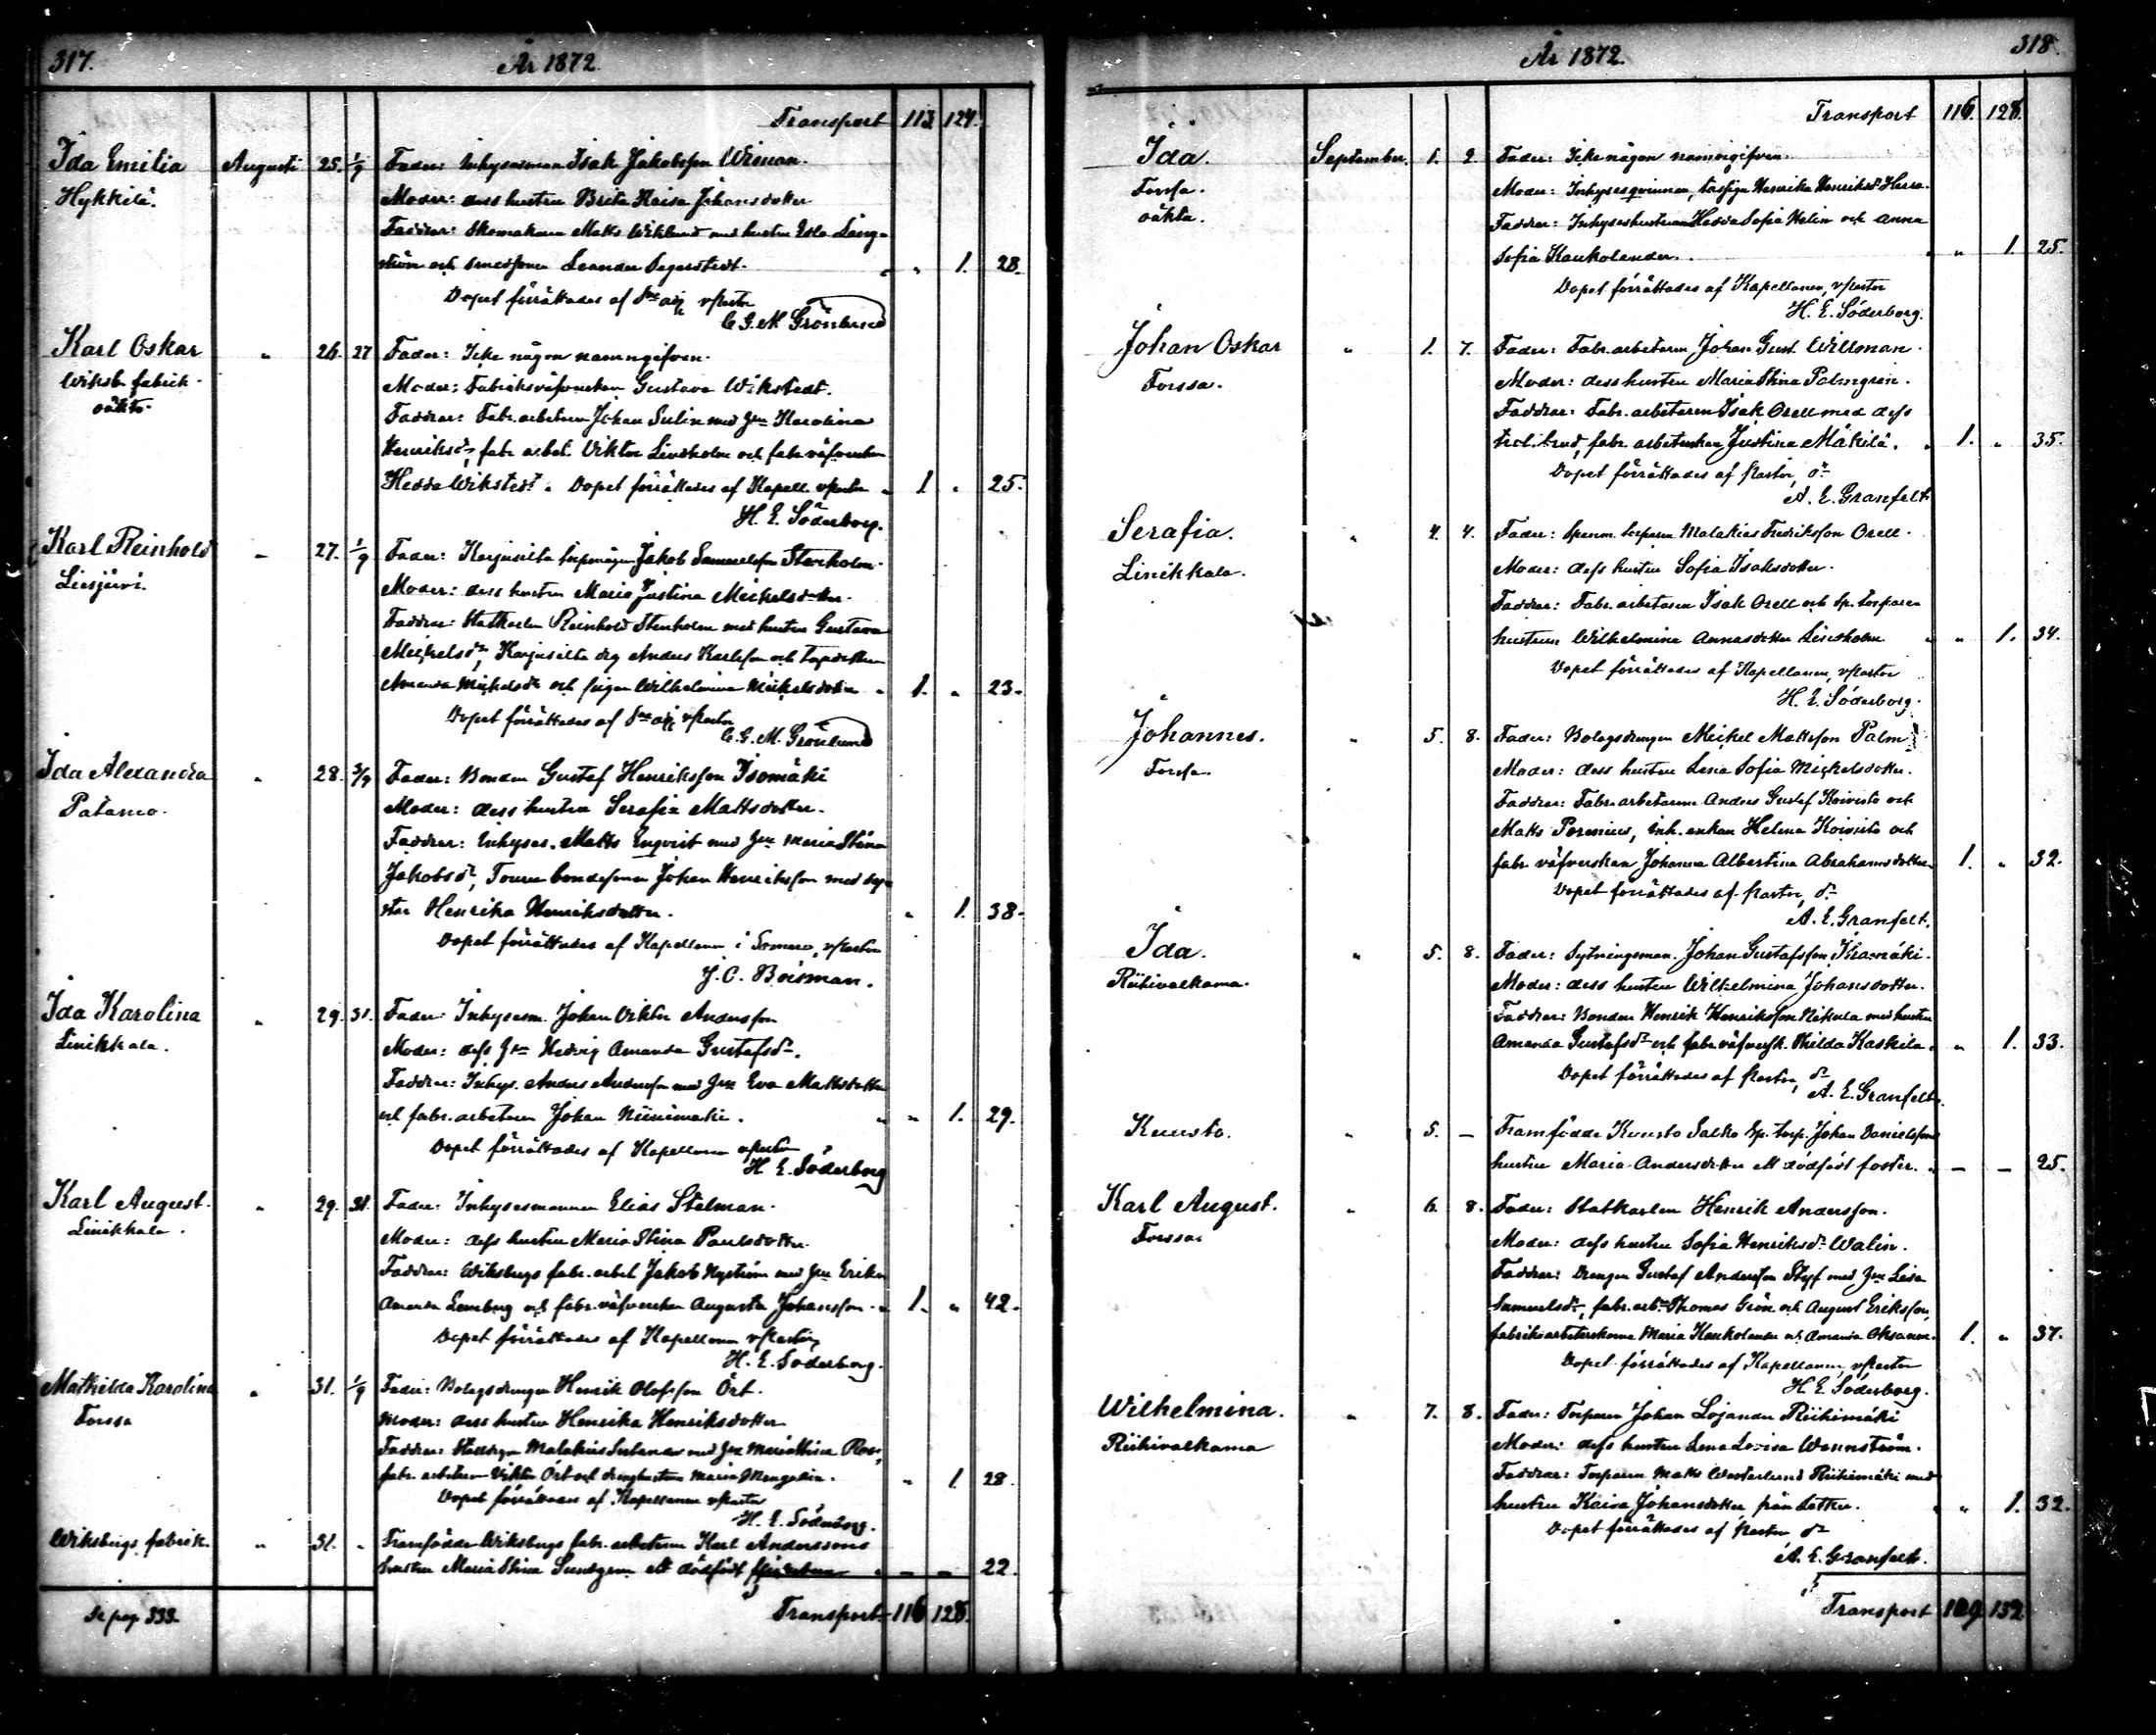 317.
År 1872.
Transport 113. 124.
Ida Emilia Augusti 25. 1/9 Fader: Inhysesman Isak Jakobsson Wiman.
Hykkilä. Moder: dess hustru Brita Kaisa Johansdotter
Faddrar: Skomakaren Matts Wiklund med hustru Ulla Läng-
ström och smedsonen Leander Segerstedt. " 1. 28.
Dopet förrättades af vPastor
C. G. M. Grönlund
Karl Oskar " 26. 27 Fader: Icke någon namngifven.
Wiksb. fabrik. Moder: Fabriksväfverskan Gustava Wikstedt.
oäkta. Faddrar: Fabr. arbetaren Johan Sulin med Karolina
Henriksdr, fabr. arbet. Viktor Lindholm och fabr. väfverskan
Hedda Wikstedt. Dopet förrättades af Kapell. vPastor 1. " 25.
H. E. Söderborg.
Karl Reinhold " 27. 1/9 Fader: Jakob Samuelsson Stenholm.
Liesjärvi. Moder: dess hustru Maria Justina Mickelsdotter.
Faddrar: Statkarlen Reinhold Stenholm med hustru Gustava
Mickelsdr, Karjusilta drg Anders Karlsson och
Amanda Mickelsdr och pigan Wilhelmina Mickelsdotter 1. " 23.
Dopet förrättades af vPastor
C. G. M. Grönlund
Ida Alexandra " 28. 3/9 Fader: Bonden Gustaf Henriksson Isomäki
Patamo. Moder: dess hustru Serafia Mattsdotter.
Faddrar: Inhyses. Matts Enqvist med Maria Stina
Jakobsdr, bondesonen Johan Henriksson med sys-
ter Henrika Henriksdotter. " 1. 38.
Dopet förrättades af Kapellanen i Somero, vPastor
J. C. Boisman.
Ida Karolina " 29. 31. Fader: Inhysesm. Johan Viktor Andersson
Linikkala. Moder: dess Hedvig Amanda Gustafsdr.
Faddrar: Inhys. Anders Andersson med Eva Mattsdotter
och fabr. arbetaren Johan Niinimäki. " 1. 29.
Dopet förrättades af Kapellanen vPastor
H. E. Söderborg
Karl August. " 29. 31. Fader: Inhysesmannen Elias Stelman.
Linikkala. Moder: dess hustru Maria Stina Paulsdotter.
Faddrar: Wiksbergs fabr. arbet Jakob Nyström med Erika
Amanda Lemberg och fabr. väfverskan Augusta Johansson. 1. " 42.
Dopet förrättades af Kapellanen vPastor
H. E. Söderborg.
Mathilda Karolina " 31. 1/9 Fader: Bolagsdrengen Henrik Olofsson Ört.
Forssa Moder: dess hustru Henrika Henriksdotter
Faddrar: Malakias med Maria Stina
fabr. arbetaren Viktor Ört och Maria " 1. 28.
Dopet förrättades af Kapellanen vPastor
H. E. Söderborg.
Wiksbergs fabrik. " 31. " Framfödde Wiksbergs fabr. arbetaren Karl Anderssons
hustru Maria Stina Sundgren ett dödfödt – – 22.
Se pag 333. Transport 116 128.
318.
År 1872.
Transport 116. 128.
Ida. September. 1. 2. Fader: Icke någon namngifven.
Forssa. Moder: Inhysesqvinnan, Henrika Henriksdr
oäkta. Faddrar: Inhyseshustrun Hedda Sofia Helin och Anna
Sofia Kaukolander. " 1. 25.
Dopet förrättades af Kapellanen, vPastor
H. E. Söderborg.
Johan Oskar " 1. 7. Fader: Fabr. arbetaren Johan Gust. Willman.
Forssa. Moder: dess hustru Maria Stina Palmgren.
Faddrar: Fabr. arbetaren Isak Orell med dess
trol. brud, fabr. arbeterskan Justina Mäkilä. 1. " 35.
Dopet förrättades af Pastor, dr
A. E. Granfelt.
Serafia. " 4. 4. Fader: Spanm. torparen Malakias Fredriksson Orell.
Linikkala. Moder: dess hustru Sofia Isaksdotter.
Faddrar: Fabr. arbetaren Isak Orell och Sp. torpare
hustrun Wilhelmina Annasdotter Lindholm " 1. 34.
Dopet förrättades af Kapellanen, vPastor
H. E. Söderborg.
Johannes. " 5. 8. Fader: Bolagsdrengen Mickel Mattsson Palm
Forssa. Moder: dess hustru Lena Sofia Mickelsdotter.
Faddrar: Fabr. arbetarene Anders Gustaf Koivisto och
Matts Porenius, inh. enkan Helena Koivisto och
fabr. väfverskan Johanna Albertina Abrahamsdotter 1. " 32.
Dopet förrättades af Pastor, dr
A. E. Granfelt.
Ida. " 5. 8. Fader: Sytningsman. Johan Gustafsson Kramäki.
Riihivalkama. Moder: dess hustru Wilhelmina Johansdotter.
Faddrar: Bonden Henrik Henriksson Nikula med hustru
Amanda Gustafsdr och fabr. väfversk. Hilda Kaskila. " 1. 33.
Dopet förrättades af Pastor, dr
A. E. Granfelt.
Kuusto. " 5. – Framfödde Kuusto Salko Sp. torp. Johan Danielssons
hustru Maria Andersdotter ett dödfödt foster. – – 25.
Karl August. " 6. 8. Fader: Statkarlen Henrik Andersson.
Forssa. Moder: dess hustru Sofia Henriksdr Walin.
Faddrar: Drengen Gustaf Andersson Styf med Lisa
Samuelsdr, fabr. arb. Thomas Grön och August Eriksson,
fabriksarbeterskorna Maria Kaukolander och Amanda Oksanen. 1. " 37.
Dopet förrättades af Kapellanen, vPastor
H. E. Söderborg.
Wilhelmina. " 7. 8. Fader: Torparen Johan Lojander Riihimäki
Riihivalkama Moder: dess hustru Lena Lovisa Wennström.
Faddrar: Torparen Matts Westerlund Riihimäki med
hustru Kaisa Johansdotter från " 1. 32.
Dopet förrättades af Pastor dr
A. E. Granfelt.
Transport 119. 132.